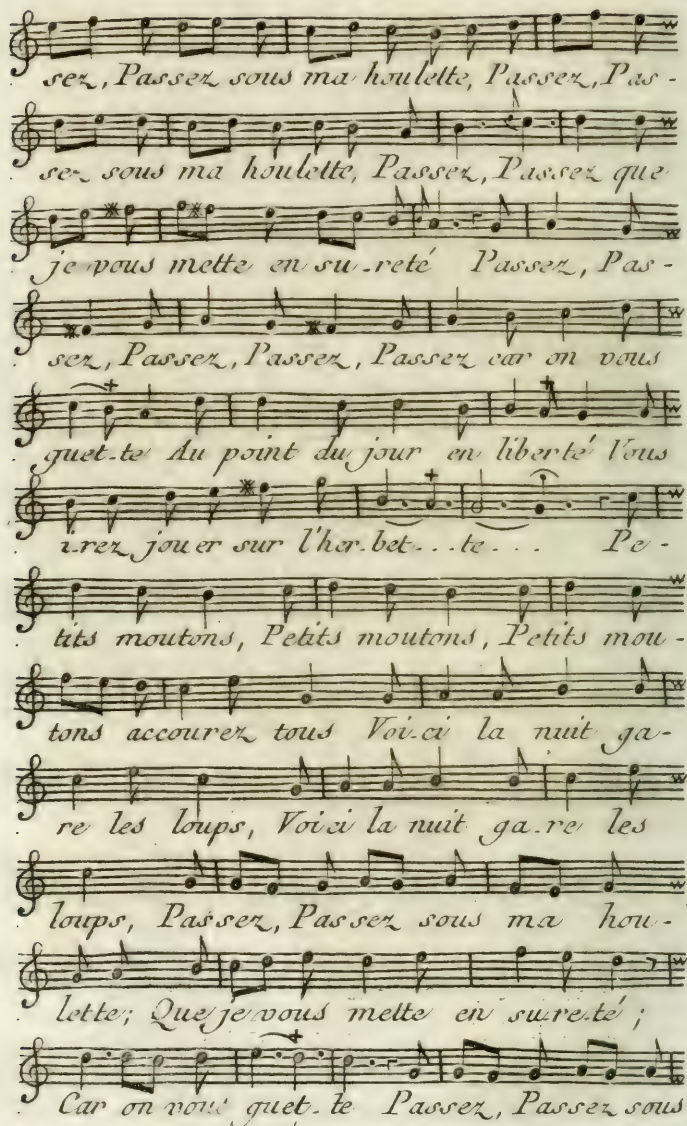 sez, Passez sous ma houlette, Passez, Pas-
sez sous ma houlette, Passez, Passez que
je vous mette en su-reté Passez, Pas-
sez, Passez, Passez, Passez car on vous
guet-te Au point du jour en liberté Vous
i-rez jouer sur l'her-bet...te... Pe-
tits moutons, Petits moutons, Petits mou-
tons accourez tous Voi-ci la nuit ga-
re les loups, Voici la nuit ga-re les
loups, Passez, Passez sous ma hou-
lette; Que je vous mette en su-re-té;
Car on vous guet-te Passez, Passez sous